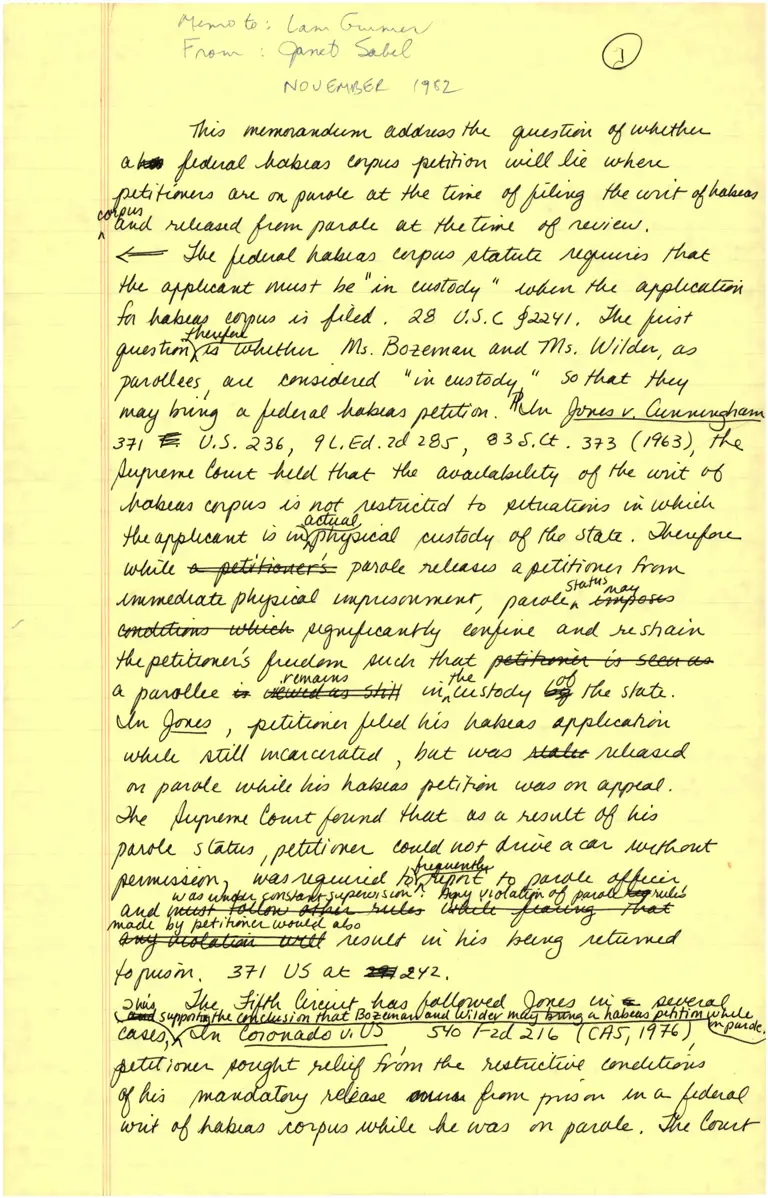 Memo to: Lani Guinier
From: Janet Sabel
1
NOVEMBER 1982
This memorandum address the question of whether
a federal habeas corpus petition will lie where
petitioners are on parole at the time of filing the writ of habeas
corpus and released from parole at the time of review.
← The federal habeas corpus statute requires that
the applicant must be "in custody" when the application
for habeas corpus is filed. 28 U.S.C §2241. The first
question therefore is whether Ms. Bozeman and Ms. Wilder, as
parollees, are considered "in custody," so that they
may bring a federal habeas petition. ¶ In Jones v. Cunningham
371 U.S. 236, 9 L.Ed.2d 285, 83 S.Ct. 373 (1963), the
Supreme Court held that the availability of the writ of
habeas corpus is not restricted to situations in which
the applicant is in actual physical custody of the state. Therefore
while a petitioner's parole releases a petitioner from
immediate physical imprisonment, parole status may imposes
conditions which significantly confine and restrain
the petitioner's freedom such that petitioner is seen as
a parollee is remains viewed as still in the custody of the state.
In Jones, petitioner filed his habeas application
while still incarcerated, but was state released
on parole while his habeas petition was on appeal.
The Supreme Court found that as a result of his
parole status, petitioner could not drive a car without
permission, was required to frequently report to parole officer
was under constant supervision. Any violation of parole rules
and must follow other rules while fearing that
made by petitioner would also
any violation will result in his being returned
to prison. 371 US at 242.
The Fifth Circuit has followed Jones in several
thus supporting the conclusion that Bozeman and Wilder may bring a habeas petition while on parole.
cases, In Coronado v. US 540 F2d 216 (CA5, 1976),
petitioner sought relief from the restrictive conditions
of his mandatory release from prison in a federal
writ of habeas corpus while he was on parole. The Court